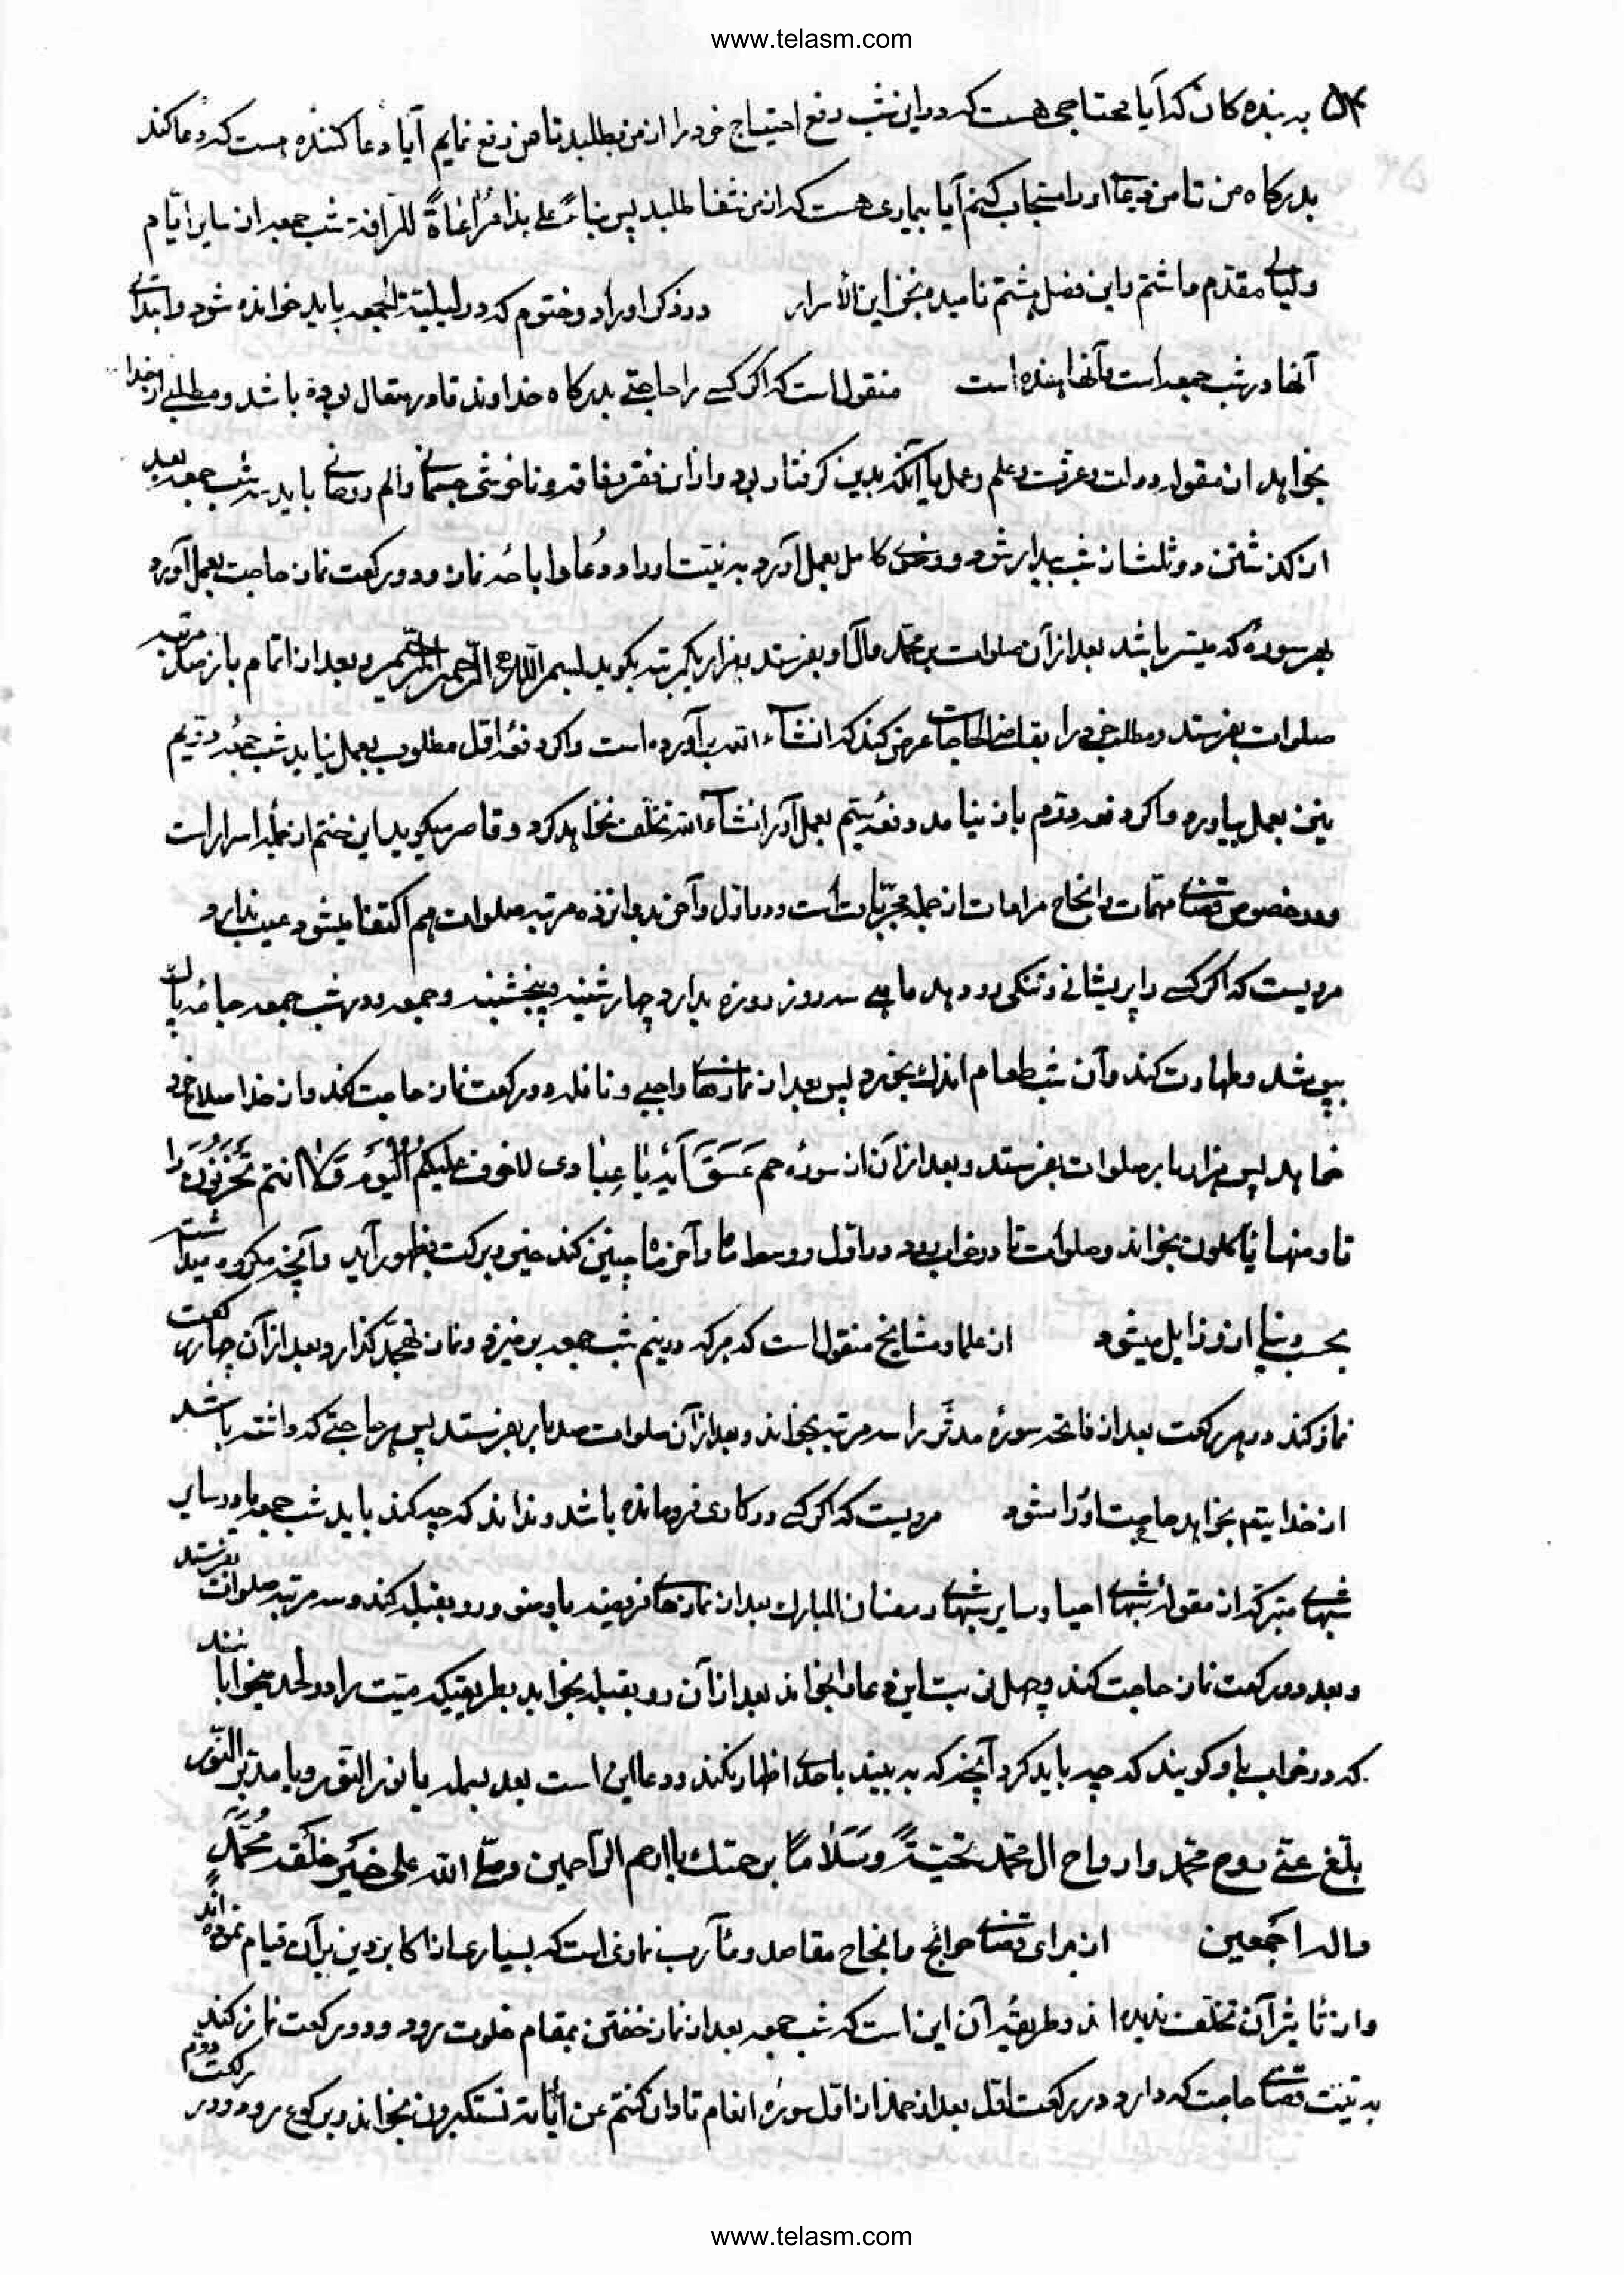 www.telasm.com
۵۴ به بنده کان که آیا محتاجی هست که در این شب رفع احتیاج خود را از من بطلبد تا من رفع نمایم آیا دعا کننده هست که دعا کند
بدرکاه من تا من دعای او را مستجاب کنم آیا بیماری هست که از من شفا طلبد پس بناءً علی هذا شب جمعه را از سایر ایّام
ولیالی مقدم داشتم واین فصل هشتم نامیده مخزن الأسرار در ذکر اوراد وختوم که در لیلیة الجمعه باید خوانده شود وابتدای
آنها در شب جمعه است منقول است که اکر کسی را حاجتی بدرکاه خداوند قادر متعال بوده باشد ومطلبی از خدا
بخواهد از مقوله دولت وعزت وعلم وعمل یا آنکه بدین کرفتار بود واز فقر وفاقه وناخوشی جسمانی والم روحانی باید شب جمعه بعد
از کذشتن دو ثلث از شب بیدار شود و وضوی کامل بعمل آورد به نیت اوراد ودعا ودو رکعت نماز حاجت بعمل آورد
بهر سوره که میسر باشد بعد از آن صلوات بر محمد وآل او بفرستد بهزار یکمرتبه بکوید بسم اللّه الرّحمن الرّحیم وبعد از اتمام باز مرتبه
صلوات بفرستد ومطلب خود را بقاضی الحاجات عرض کند که انشاء الله برآورده است واکر دفعه اول مطلوب بعمل نیاید شب جمعه دویم
بعمل بیاورد واکر دفعه دوم باز نیامد دفعه سیّم بعمل آورد انشاء الله تخلف نخواهد کرد وقاصر میکوید این ختم از جمله اسرار است
ودر خصوص قضای مهمات وانجاح مرامات از جمله مجرّبات است ودر اول وآخر مرتبه صلوات هم اکتفا میشود عیب ندارد
مرویست که اکر کسی را پریشانی وتنکی رو دهد ماهی سه روز روزه بدارد چهارشنبه وپنجشنبه وجمعه ودر شب جمعه جامه پاک
بپوشد وطهارت کند وآن شب طعام اندک بخورد پس بعد از نمازهای واجبی ونافله دو رکعت نماز حاجت کند واز خدا صلاح خود
خواهد پس هزار بار صلوات بفرستد وبعد از آن از سوره حم عسق آیه یا عِبٰادی لا خوف علیکم الیوم وَلا انتم تحزنون را
تا ومنها تأکلون بخواند وصلوات تا در خواب رود در اول ووسط ماه وآخر ماه چنین کند خیر وبرکت بظهور آید وآنچه مکروه میداشته
بحسب دنیا از زایل میشود از علما ومشایخ منقول است که هرکه در نیم شب جمعه برخیزد ونماز تهجّد کذارد وبعد از آن چهار رکعت
نماز کند در هر رکعت بعد از فاتحه سوره مدثّر را سه مرتبه بخواند وبعد از آن صلوات صد بار بفرستد پس هر حاجتی که داشته باشد
از خدا بخواهد حاجت او روا شود مرویست که اکر کسی در کاری فرومانده باشد ونداند که چه کند باید شب جمعه یا در سایر
شبهای متبرکه از مقوله شبهای احیا وسایر شبهای رمضان المبارک بعد از نمازهای فریضه با وضو ورو بقبله کند وسه مرتبه صلوات بفرستد
وبعد دو رکعت نماز حاجت کند وچهل نوبت این دعا بخواند بعد از آن رو بقبله بخوابد بطریقیکه میت را در لحد میخوابانند
که در خواب باو کویند که چه باید کرد آنچه که به بیند باحدی اظهار نکند ودعا این است بعد بسمله یا نور النّور ویا مدبّر النّور
بلّغ عنّی روح محمد وارواح ال محمد تحیّةً وسَلٰامًا برحمتک یا ارحم الراحمین وصلّی الله علی خیر خلقه محمّد
واله اجمعین از برای قضای حوائج وانجاح مقاصد ومآرب نمازی است که بسیاری از اکابر دین برآن قیام نموده اند
واز تأثیر آن تخلف ندیده اند وطریقه آن این است که شب جمعه بعد از نماز خفتن بمقام خلوت رود ودو رکعت نماز کند
به نیت قضای حاجت که دارد در رکعت اول بعد از حمد از اول سوره انعام تا وان کنتم عن آیاته تستکبرون بخواند وبرکوع رود ودر رکعت دوم
www.telasm.com